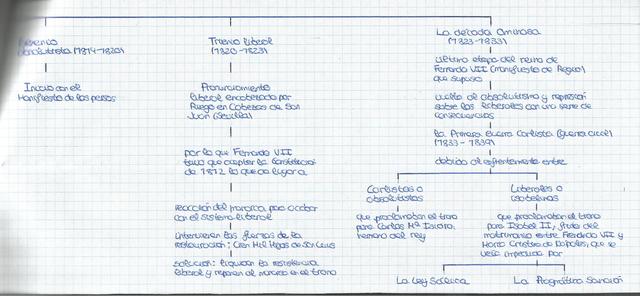 absolutista (1814-1820)
Inicio con el
Manifiesto de los persas
Trienio liberal
(1820-1823)
Pronunciamiento
liberal encabezado por
Riego en Cabezas de San
Juan (Sevilla)
por lo que Fernando VII
tuvo que aceptar la Constitución
de 1812 lo que da lugar a
reacción del monarca para acabar
con el sistema liberal
intervienen las fuerzas de la
restauración: Cien Mil Hijos de San Luis
solución: liquidan la resistencia
liberal y reponen al monarca en el trono
La década Ominosa
(1823-1833)
última etapa del reino de
Fernando VII (Manifiesto de)
que supuso
vuelta al absolutismo y represión
sobre los liberales con una serie de
consecuencias
la Primera Guerra Carlista (guerra civil)
(1833-1839)
debido al enfrentamiento entre
Carlistas o
absolutistas
que proclamaban el trono
para Carlos Mª Isidro,
hermano del rey
Liberales o
isabelinos
que proclamaban el trono
para Isabel II, fruto del
matrimonio entre Fernando VII y
María Cristina de Nápoles, que se
veía impedida por
La Ley Sálica
La Pragmática Sanción